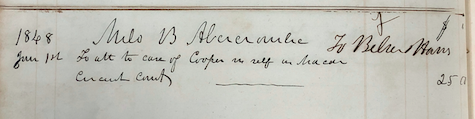 1848 Milo B Abercrombie To Belser & Harris
June 1st To att to case of Cooper vs self in Macon
Circuit Court 25